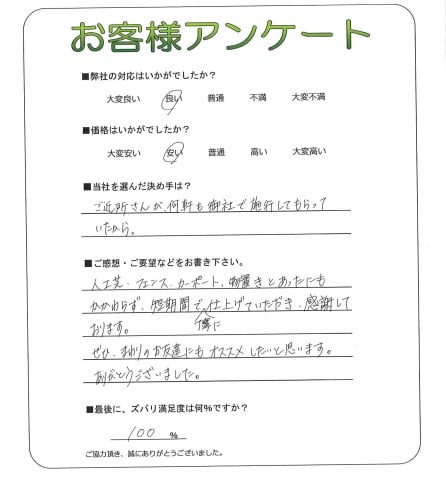 お客様アンケート
■弊社の対応はいかがでしたか?
大変良い 良い 普通 不満 大変不満
■価格はいかがでしたか?
大変安い 安い 普通 高い 大変高い
■当社を選んだ決め手は?
ご近所さんが、何軒も御社で施行してもらって
いたから。
■ご感想・ご要望などをお書き下さい。
人工芝・フェンス・カーポート、物置きとあったにも
かかわらず、短期間で仕上げていただき、感謝して
おります。
ぜひ、まわりのお友達にもオススメしたいと思います。
ありがとうございました。
■最後に、ズバリ満足度は何%ですか?
100 %
ご協力頂き、誠にありがとうございました。